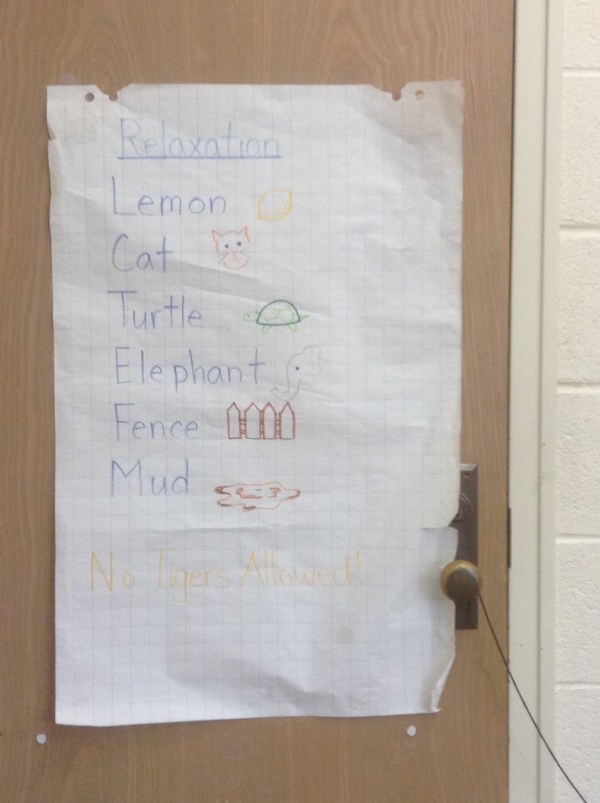 Relaxation
Lemon
Cat
Turtle
Elephant
Fence
Mud
No Tigers Allowed!!